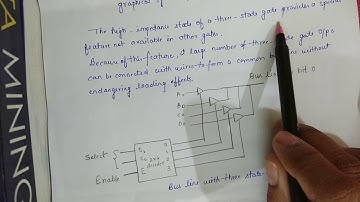 graphical
The high-impedance state of a three-state gate provides a special
feature not available in other gates.
Because of this feature, a large number of three-state gate o/ps
can be connected with wires to form a common bus line without
endangering loading effects.
Bus line bit 0
A0
B0
C0
D0
Select
S1
S0
2x4
decoder
E
0
1
2
3
Enable
Bus line with three state-
A MINING